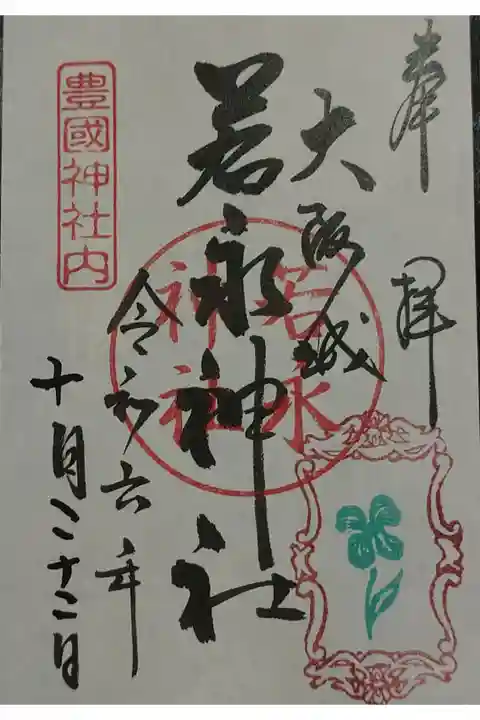 奉拝
大阪城
若永神社
若永神社
令和六年
十月二十二日
豊國神社内